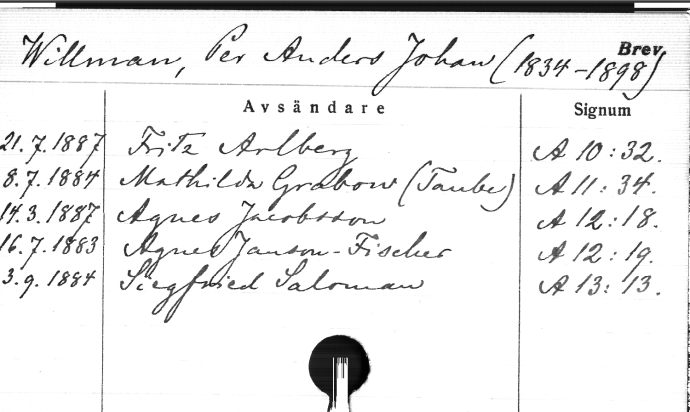 Willman, Per Anders Johan (1834-1898)
Brev
Avsändare Signum
21.7.1887 Fritz Arlberg A 10:32.
8.7.1884 Mathilda Grabow (Taube) A 11:34.
14.3.1887 Agnes Jacobsson A 12:18.
16.7.1883 Agnes Janson-Fischer A 12:19.
3.9.1884 Siegfried Saloman A 13:13.